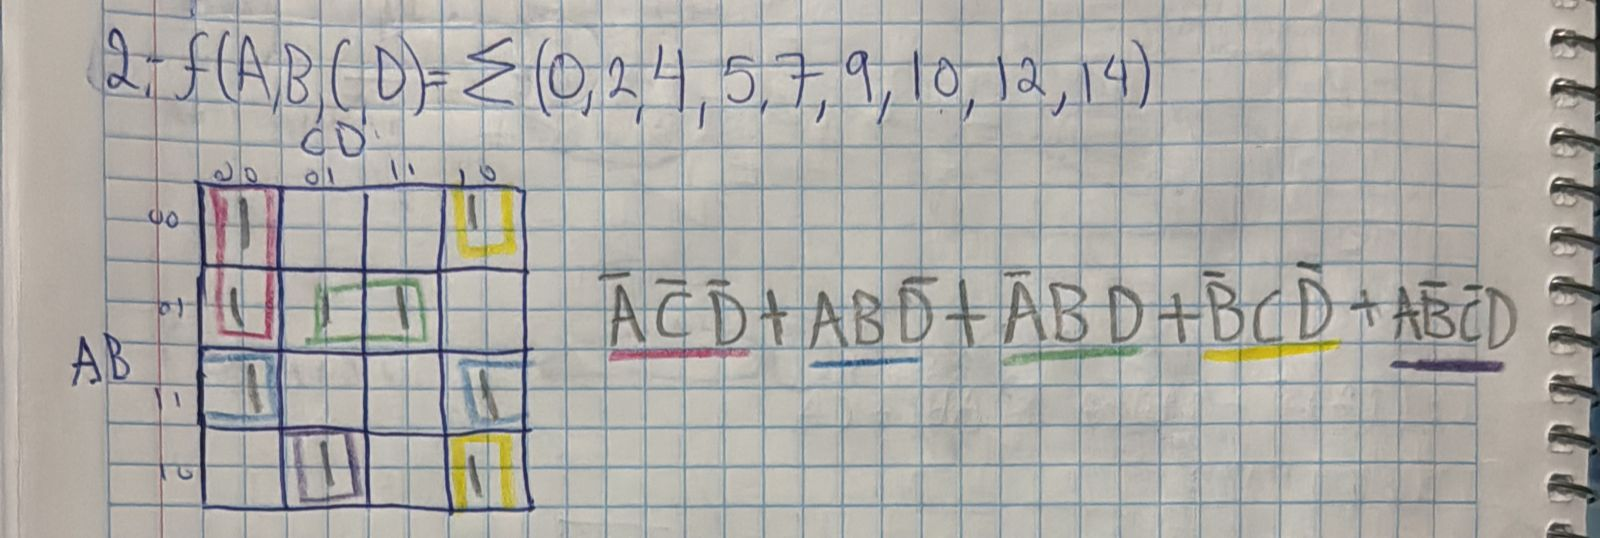 2.- f(A,B,C,D)= Σ (0,2,4,5,7,9,10,12,14)
CD
00 01 11 10
00 1 1
01 1 1 1
AB
11 1 1
10 1 1
A̅ C̅ D̅ + A B D̅ + A̅ B D + B̅ C D̅ + A B̅ C̅ D